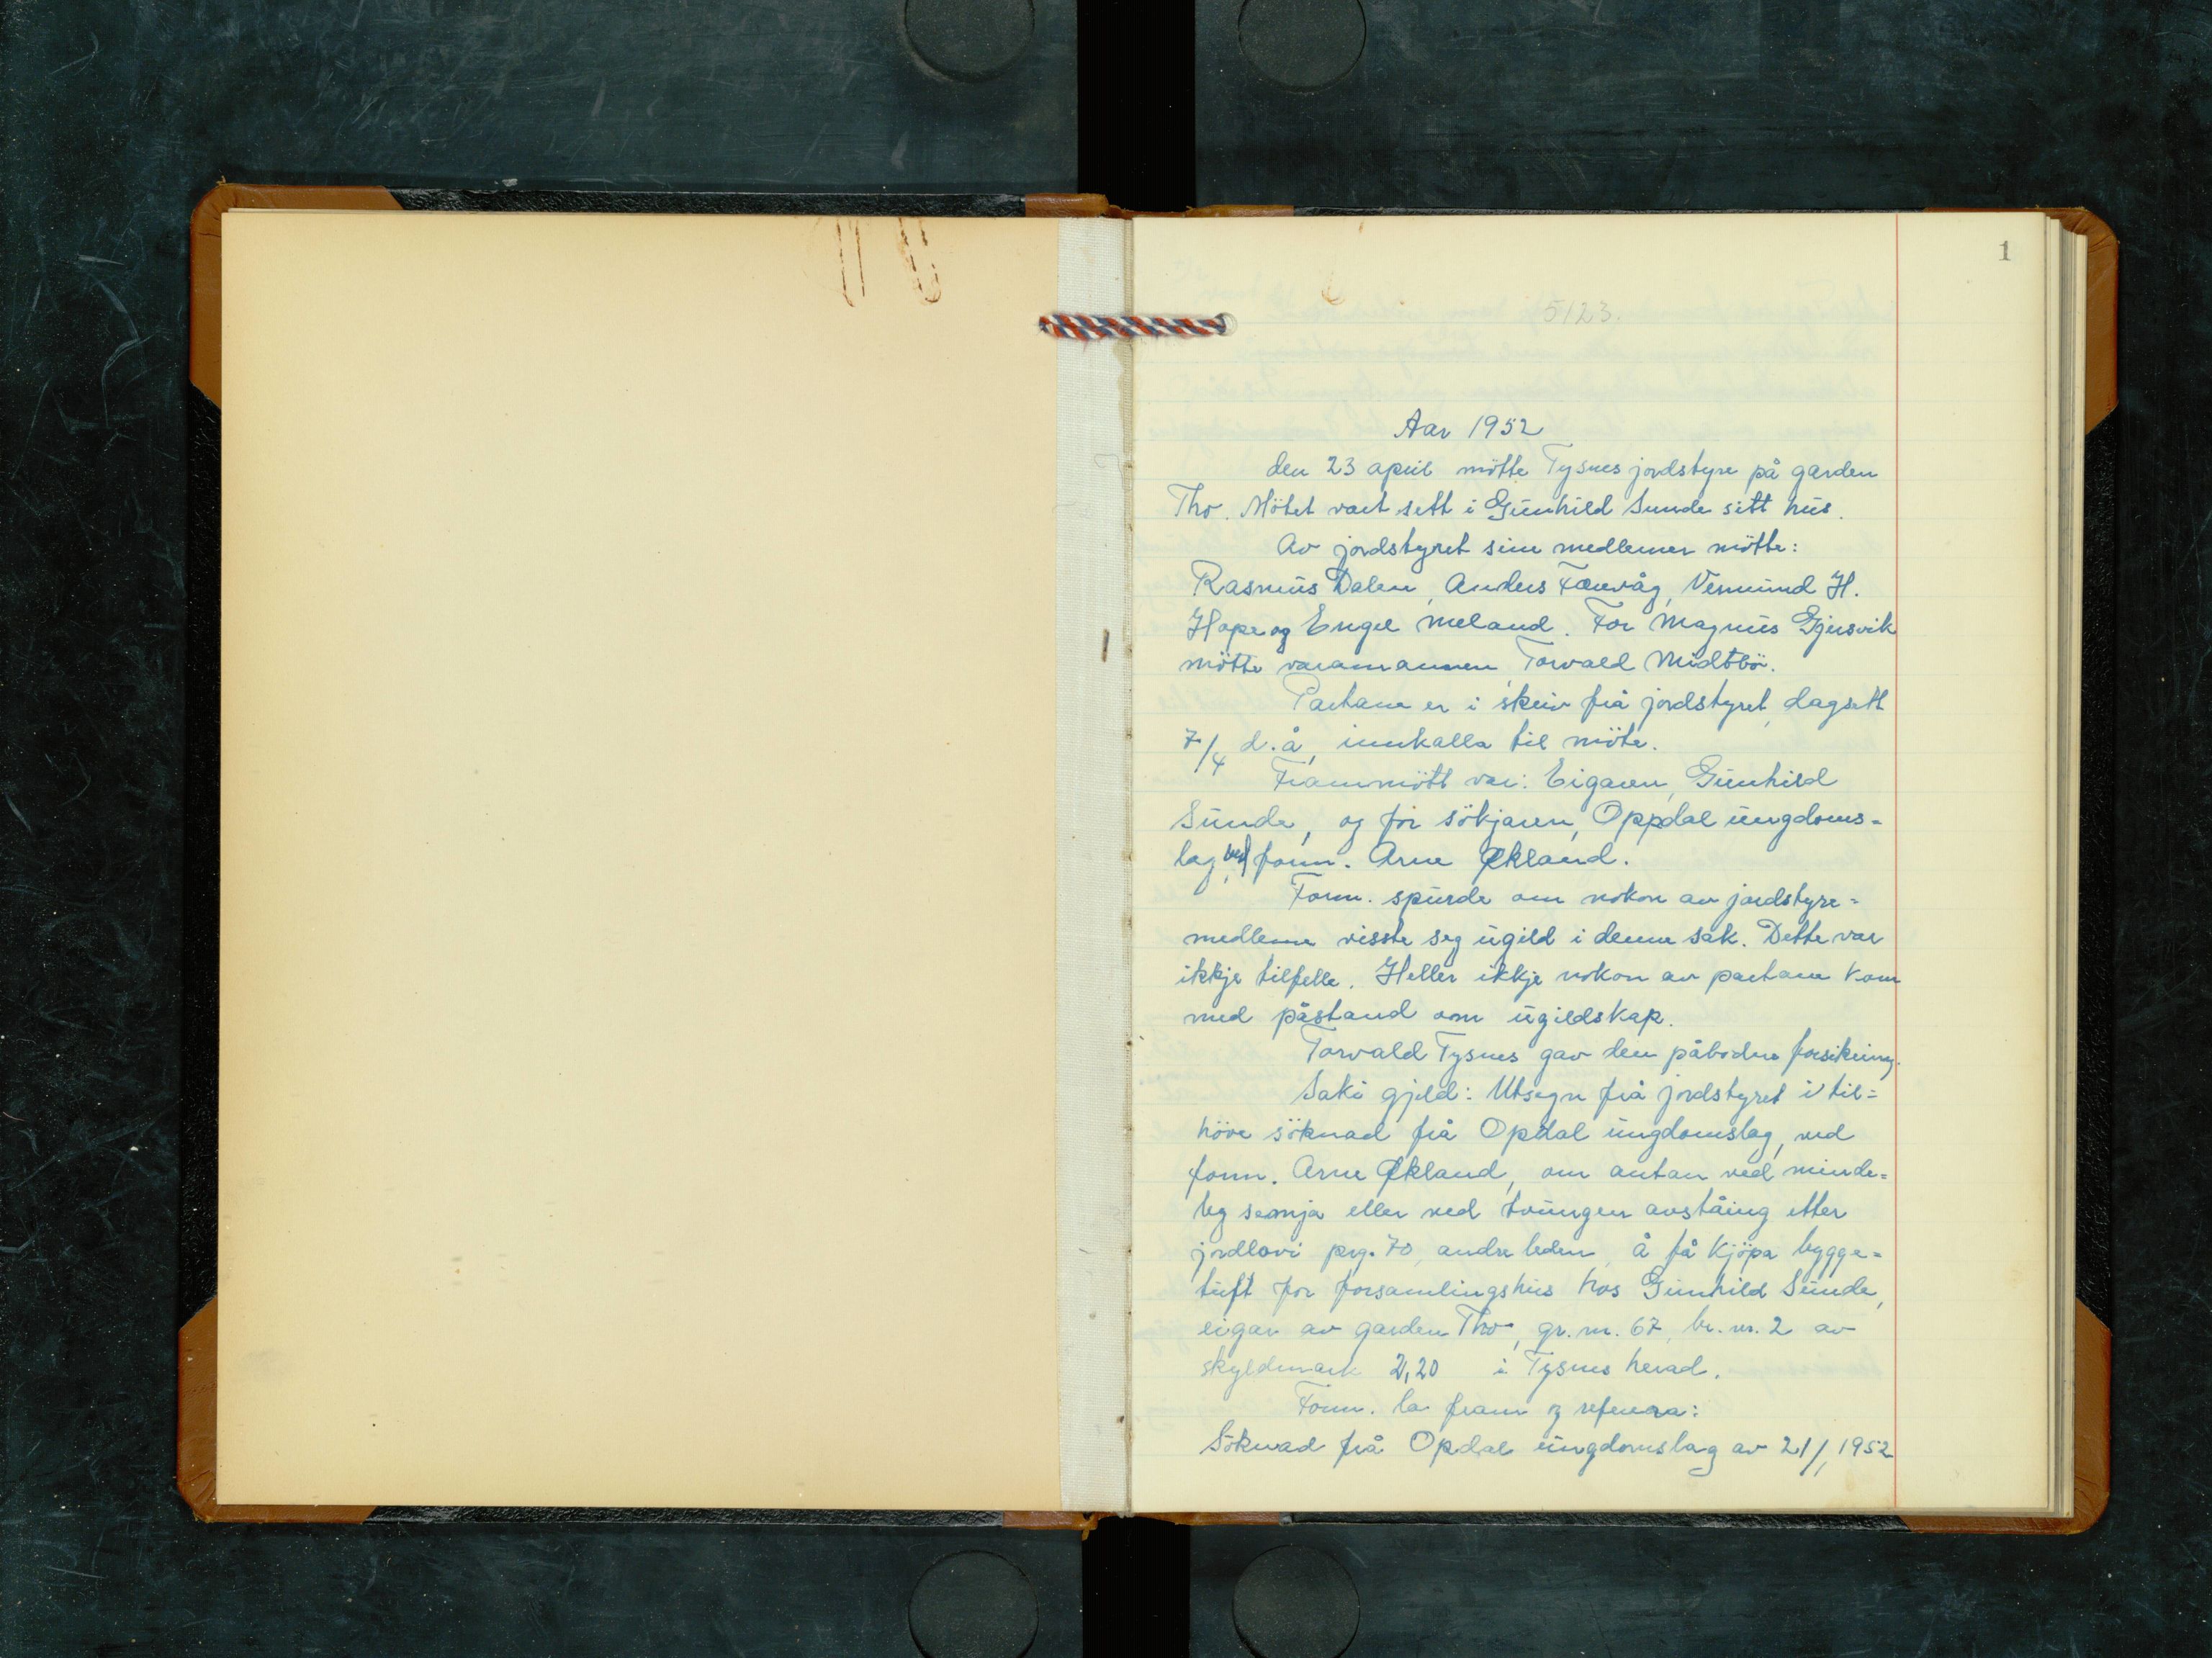 1
5123.
Aar 1952
den 23 april mötte Tysnes jordstyre på garden
Tho. Mötet vart sett i Gunhild Sunde sitt hus.
Av jordstyret sine medlemer mötte:
Rasmus Dalen, Anders Færvåg, Vermund H.
Hope og Engel Meland. For Magnus Gjersvik
mötte varamannen, Torvald Midtbö.
Partane er i skriv frå jordstyret, dagsett
7/4 d.å, innkalla til möte.
Frammött var: Eigaren, Gunhild
Sunde, og for sökjaren, Oppdal ungdoms=
lag, ved form. Arne Økland.
Form. spurde om nokon av jordstyre=
medleme visste seg ugild i denne sak. Dette var
ikkje tilfelle. Heller ikkje nokon av partane kom
med påstand om ugildskap.
Torvald Tysnes gav den påbodne forsikring.
Saki gjeld: Utsegn frå jordstyret i til=
höve söknad frå Opdal ungdomslag, ved
form. Arne Økland, om antan ved minde=
leg semja eller ved tvungen avståing etter
jordlovi prg. 70, andre leden, å få kjöpa bygge=
tuft for forsamlingshus hos Gunhild Sunde,
eigar av garden Tho, gr. nr. 67, br. nr. 2 av
skyldmark 2,20 i Tysnes herad.
Form. la fram og referera:
Söknad frå Opdal ungdomslag av 21/1 1952